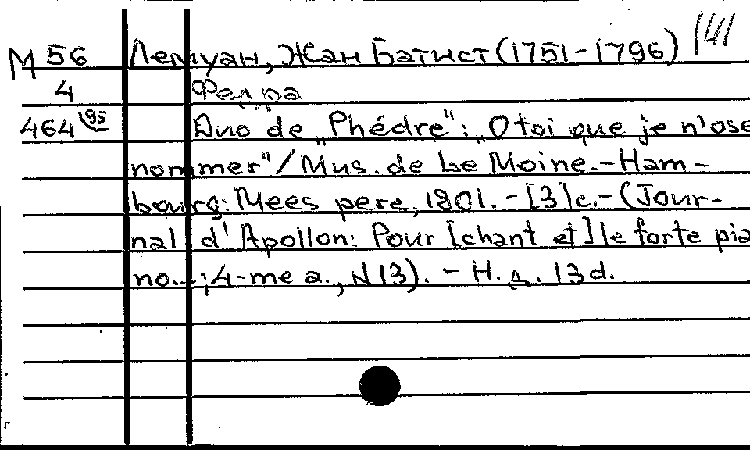 М 56 Лемуан, Жан Батист (1751-1796) 141
4 Федра
464 95 Duo de „Phédre": „O toi que je n'ose
nommer"/Mus. de Le Moine.-Ham-
bourg: Mees pere, 1801. - [3]c.-(Jour-
nal d'Apollon: Pour [chant et] le forte pia
no...; 4-me a., N13). - Н. д. 13d.